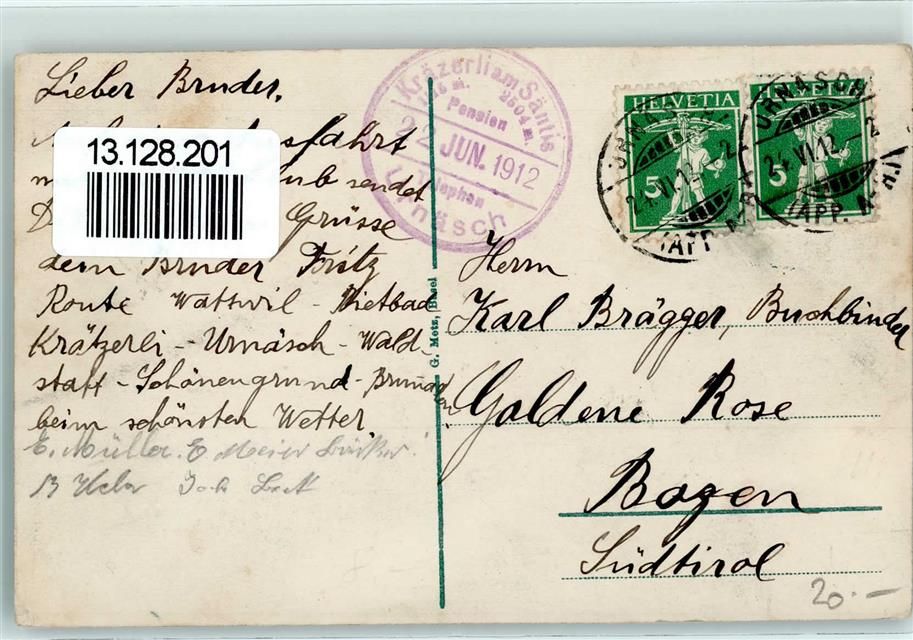 Lieber Bruder,
13.128.201
sendet
Grüsse
dein Bruder Fritz
Route Wattwil - Rietbad
Krätzerli - Urnäsch - Wald-
statt - Schönengrund - Brunnadern
beim schönsten Wetter.
E. Müller. E Meier
Kräzerli am Säntis
2504 m.
Pension
22 JUN. 1912
Telephon
Urnäsch
G. Metz, Basel
HELVETIA
5
URNÄSCH
24 VI 12
(APP. A. RH.)
5
URNÄSCH
24 VI 12
(APP. A. RH.)
Herrn
Karl Brägger, Buchbinder
Goldene Rose
Bozen
Südtirol
20.-